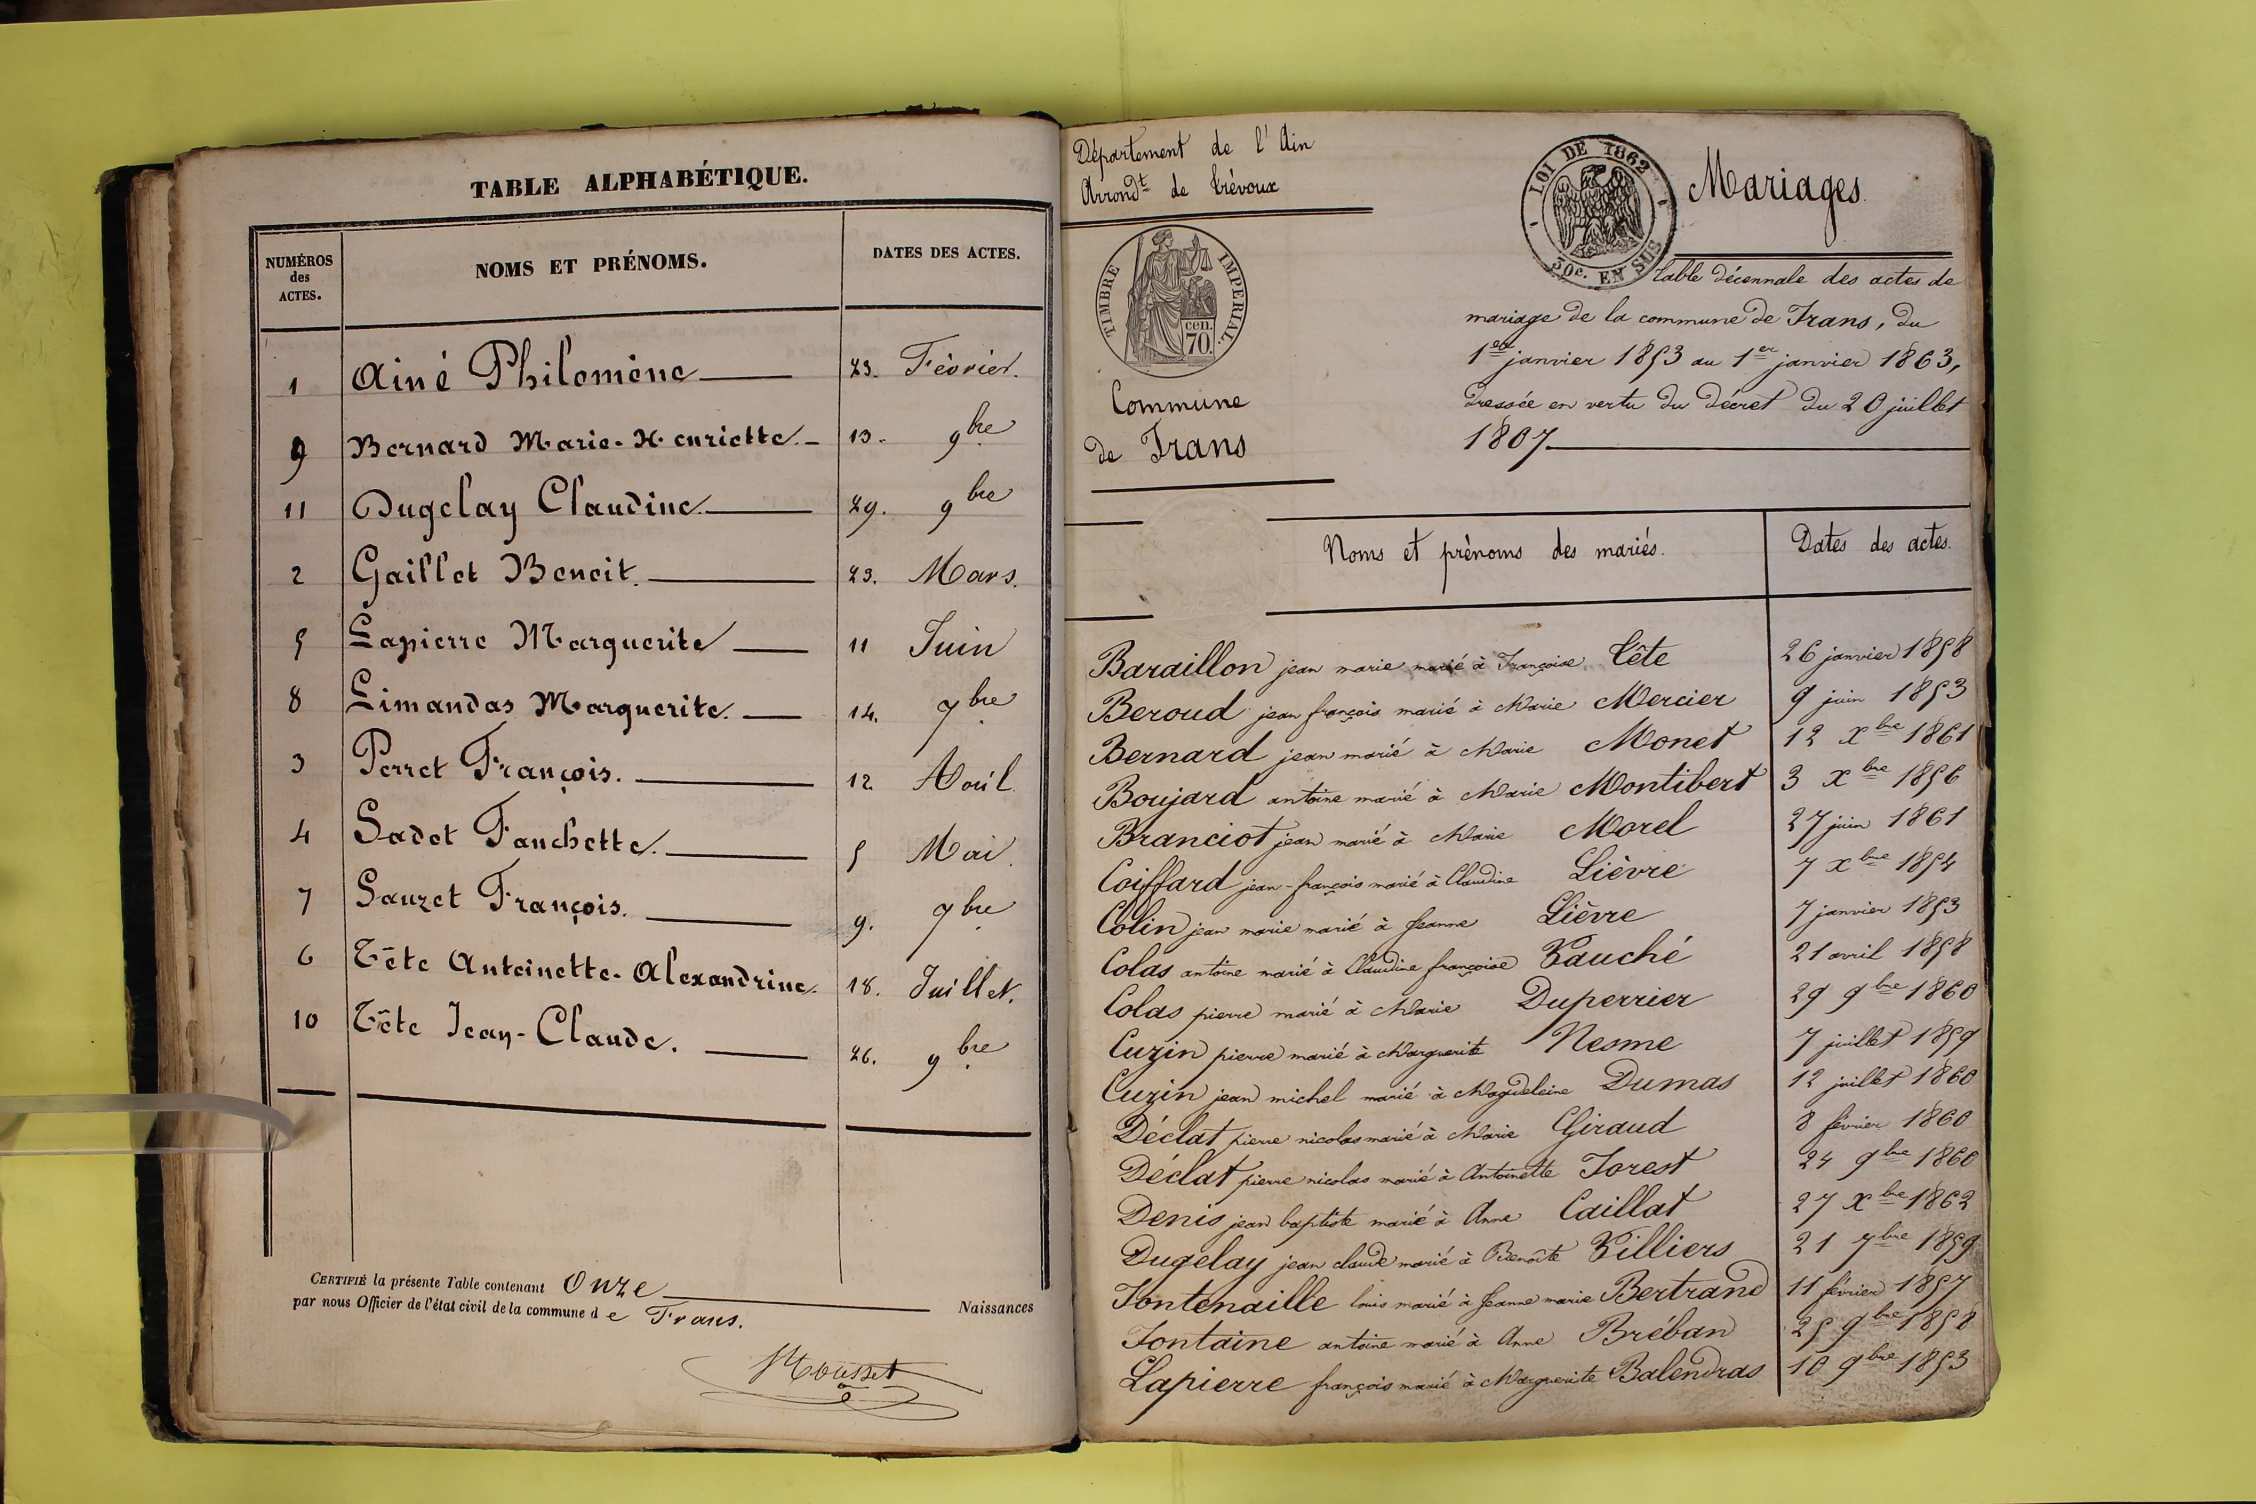 TABLE ALPHABÉTIQUE.
NUMÉROS
des
ACTES.
NOMS ET PRÉNOMS.
DATES DES ACTES.
1 Ainé Philomène 23. Février.
9 Bernard Marie-Henriette. 13. 9bre
11 Dugelay Claudine. 29. 9bre
2 Gaillet Benoit. 23. Mars.
5 Lapierre Marguerite 11 Juin
8 Limandas Marguerite. 14. 9bre
3 Perret François. 12. Avril.
4 Sadot Fanchette. 5 Mai.
7 Sauzet François. 9. 7bre
6 Tête Antoinette-Alexandrine. 18. Juillet.
10 Tête Jean-Claude. 26. 9bre
CERTIFIÉ la présente Table contenant Onze Naissances
par nous Officier de l'état civil de la commune de Trans.
Mousset
Département de l'Ain
Arrondt de Trévoux
TIMBRE IMPERIAL.
cen.
70.
Commune
de Trans
LOI DE 1862
30c. EN SUS
Mariages.
Table décennale des actes de
mariage de la commune de Trans, du
1er janvier 1853 au 1er janvier 1863,
dressée en vertu du décret du 20 juillet
1807
Noms et prénoms des mariés. Dates des actes.
Baraillon jean marie marié à Françoise Tête 26 janvier 1858
Beroud jean françois marié à Marie Mercier 9 juin 1853
Bernard jean marié à Marie Monet 12 Xbre 1861
Boujard antoine marié à Marie Montibert 3 Xbre 1856
Branciot jean marié à Marie Morel 27 juin 1861
Coiffard jean-françois marié à Claudine Lièvre 7 Xbre 1854
Colin jean marie marié à Jeanne Lièvre 7 janvier 1853
Colas antoine marié à Claudine françoise Vauché 21 avril 1858
Colas pierre marié à Marie Duperrier 29 9bre 1860
Cuzin pierre marié à Marguerite Nesme 7 juillet 1859
Cuzin jean michel marié à Magdeleine Dumas 12 juillet 1860
Déclat pierre nicolas marié à Marie Giraud 8 février 1860
Déclat pierre nicolas marié à Antoinette Forest 24 9bre 1860
Denis jean baptiste marié à Anne Caillat 27 Xbre 1862
Dugelay jean claude marié à Benoîte Villiers 21 7bre 1859
Fontenaille louis marié à Jeanne marie Bertrand 11 février 1857
Fontaine antoine marié à Anne Bréban 25 9bre 1858
Lapierre françois marié à Marguerite Balendras 10 9bre 1853